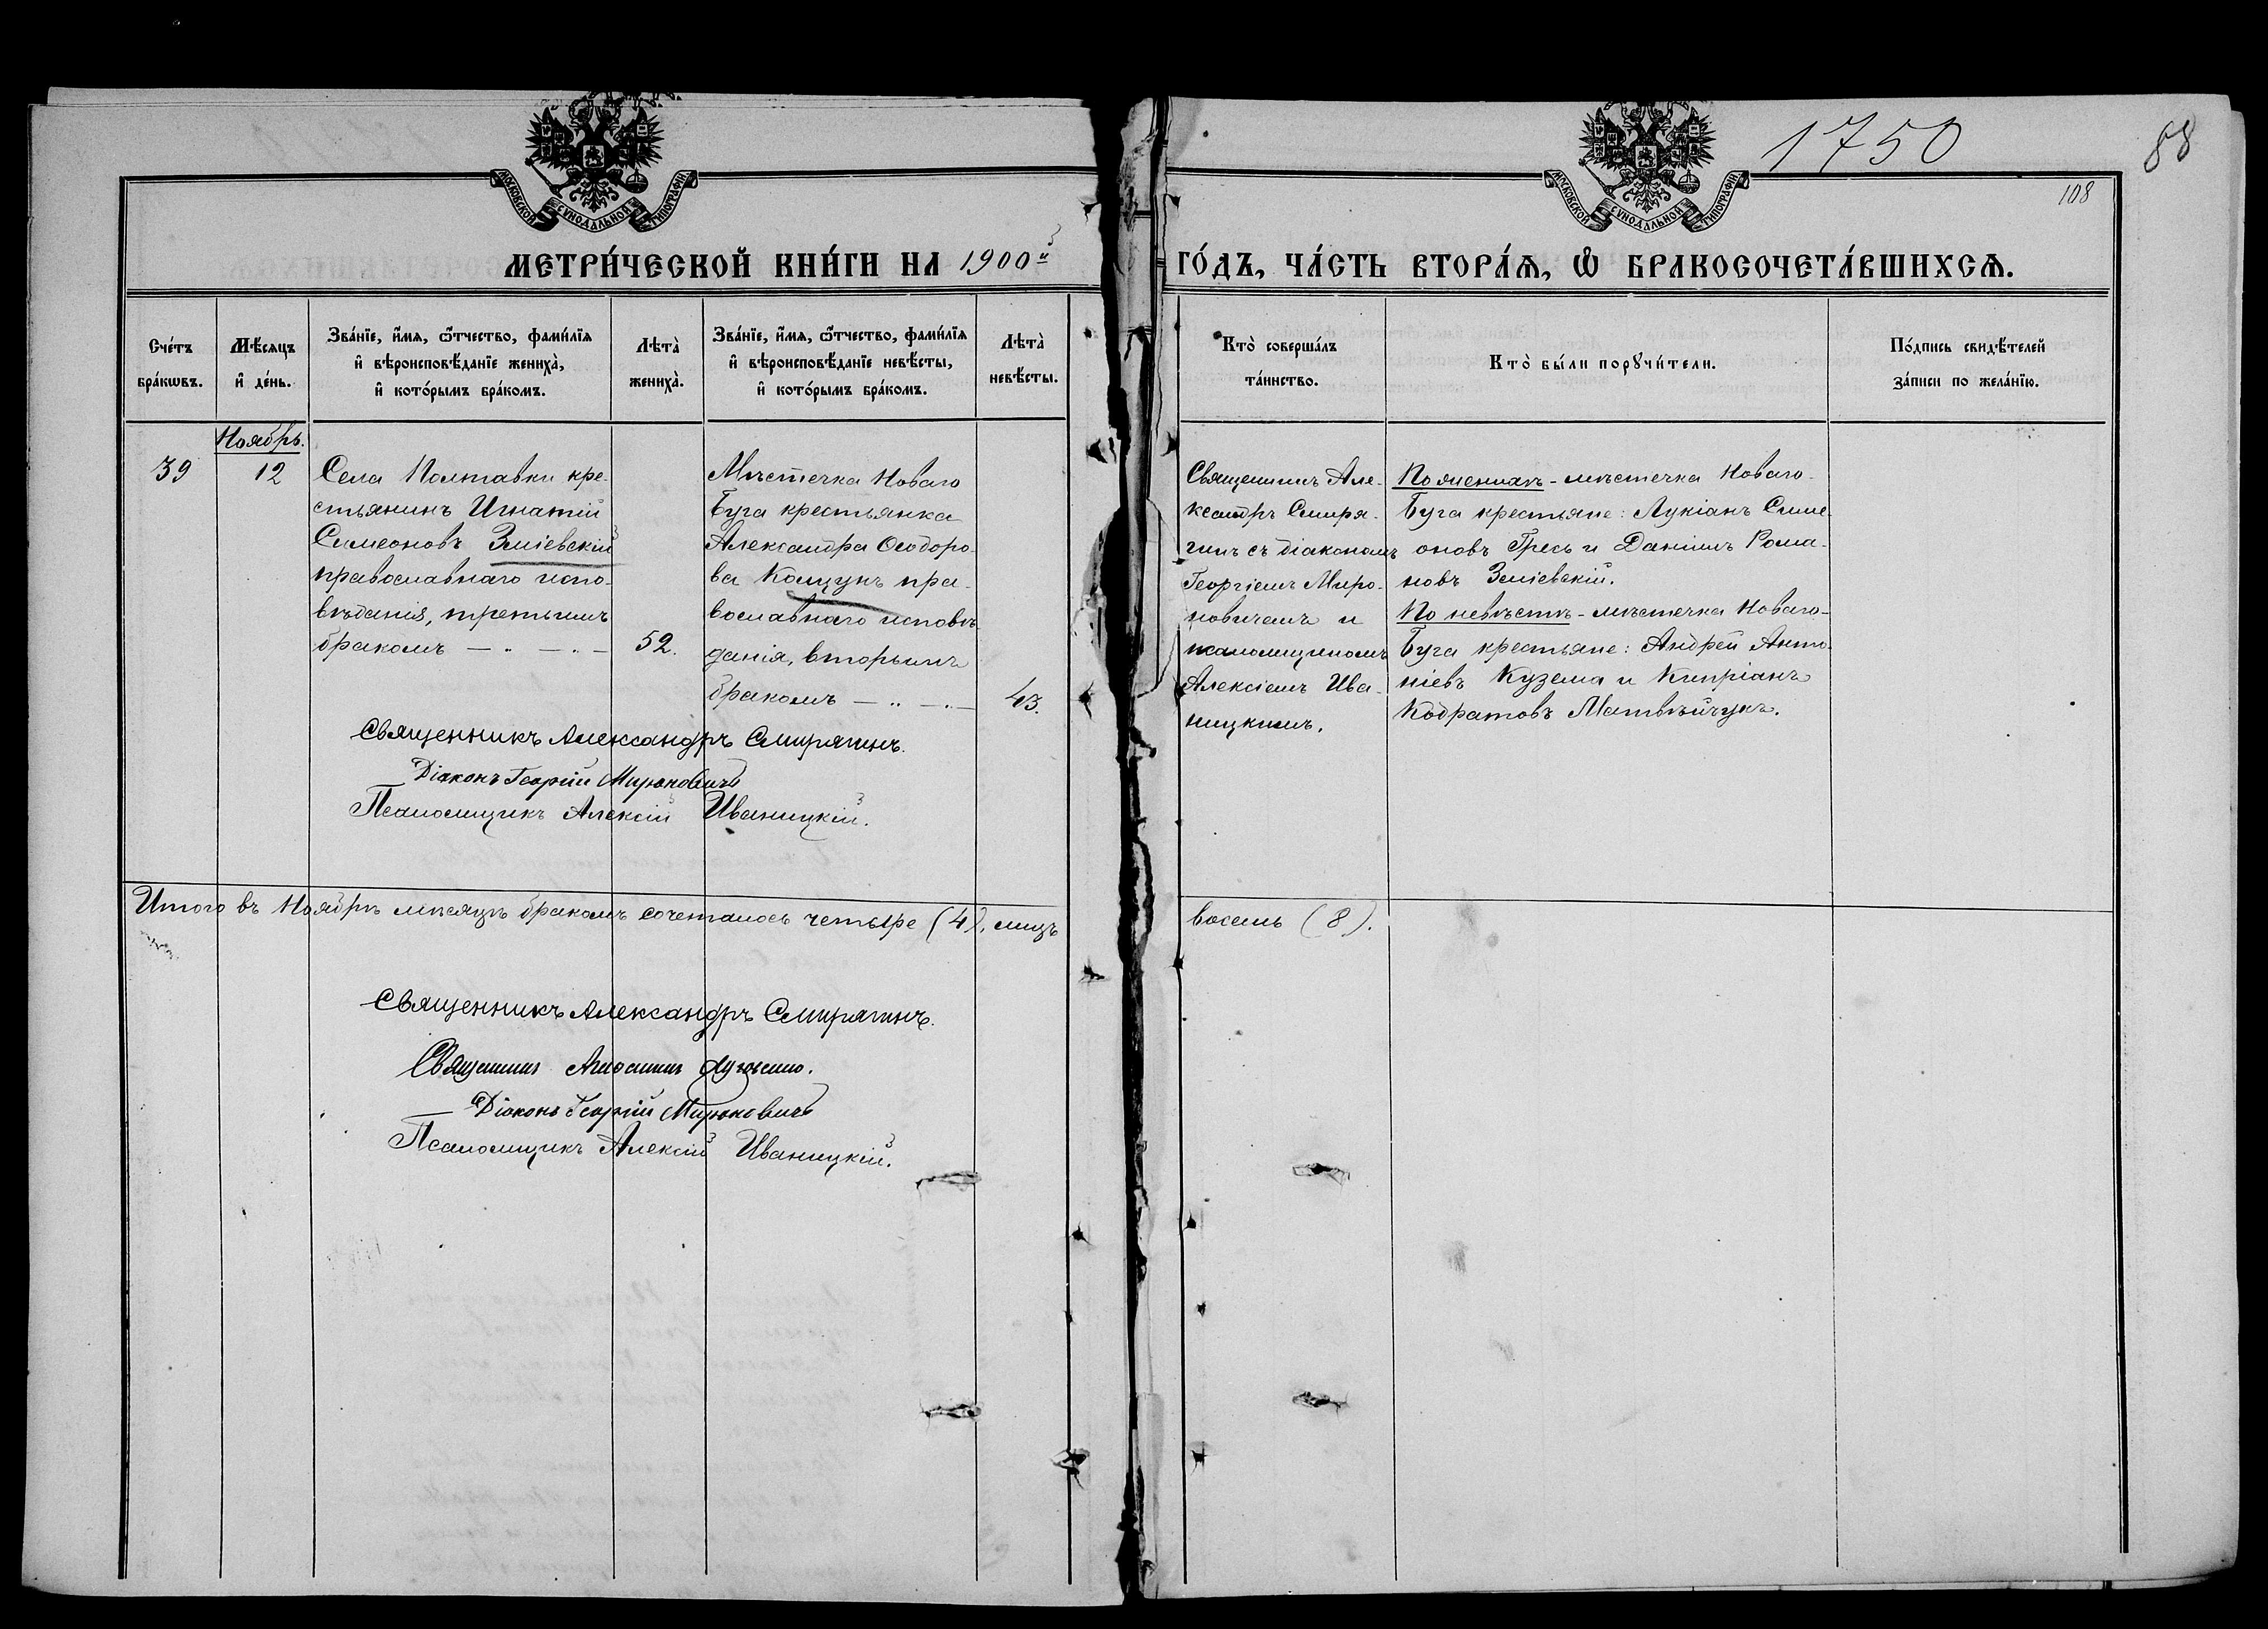 1750
88
108
МОСКОВСКОЙ СѴНОДАЛЬНОЙ ТИПОГРАФІИ
МОСКОВСКОЙ СѴНОДАЛЬНОЙ ТИПОГРАФІИ
МЕТРИ́ЧЕСКОЙ КНИ́ГИ НА 1900й ГО́ДЪ, ЧА́СТЬ ВТОРА́Ѧ, Ѡ҆ БРАКОСОЧЕТА́ВШИХСѦ.
Сче́тъ
бра́кѡвъ.
Мѣ́сяцъ
и҆ де́нь.
Зва́нїе, и҆́мя, ѻ҆́тчество, фами́лїя
и҆ вѣроисповѣ́данїе жениха̀,
и҆ кото́рымъ бра́комъ.
Лѣта̀
жениха̀.
Зва́нїе, и҆́мя, ѻ҆́тчество, фами́лїя
и҆ вѣроисповѣ́данїе невѣ́сты,
и҆ кото́рымъ бра́комъ.
Лѣта̀
невѣ́сты.
Кто̀ соверша́лъ
та́инство.
Кто̀ бы́ли порꙋчи́тели.
По́дпись свидѣ́телей
за́писи по жела́нїю.
Ноябрь.
39
12
Села Полтавки кре-
стьянинъ Игнатій
Симеоновъ Зміевскій
православнаго испо-
вѣданія, третьимъ
бракомъ — " — " —
52.
Мѣстечка Новаго
Буга крестьянка
Александра Ѳеодоро-
ва Кощунъ пра-
вославнаго исповѣ-
данія, вторымъ
бракомъ — " — " —
43.
Священникъ Але-
ксандръ Смиря-
гинъ съ діакономъ
Георгіемъ Миро-
новичемъ и
псаломщикомъ
Алексіемъ Ива-
ницкимъ.
По женихѣ - мѣстечка Новаго-
Буга крестьяне: Лукіанъ Симе-
оновъ Гресь и Даніилъ Рома-
новъ Зміевскій.
По невѣстѣ - мѣстечка Новаго-
Буга крестьяне: Андрей Анто-
ніевъ Кузема и Кипріанъ
Кодратовъ Матвѣйчукъ.
Священникъ Александръ Смирягинъ.
Діаконъ Георгій Мироновичъ
Псаломщикъ Алексій Иваницкій.
Итого въ Ноябрѣ мѣсяцѣ бракомъ сочеталось четыре (4), лицъ восемь (8).
Священникъ Александръ Смирягинъ.
Священникъ
Діаконъ Георгій Мироновичъ
Псаломщикъ Алексій Иваницкій.